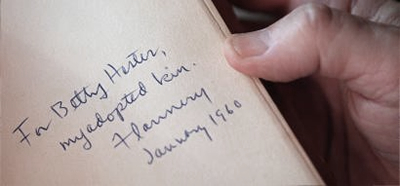 For Betty Hester,
my adopted kin.
Flannery
January 1960